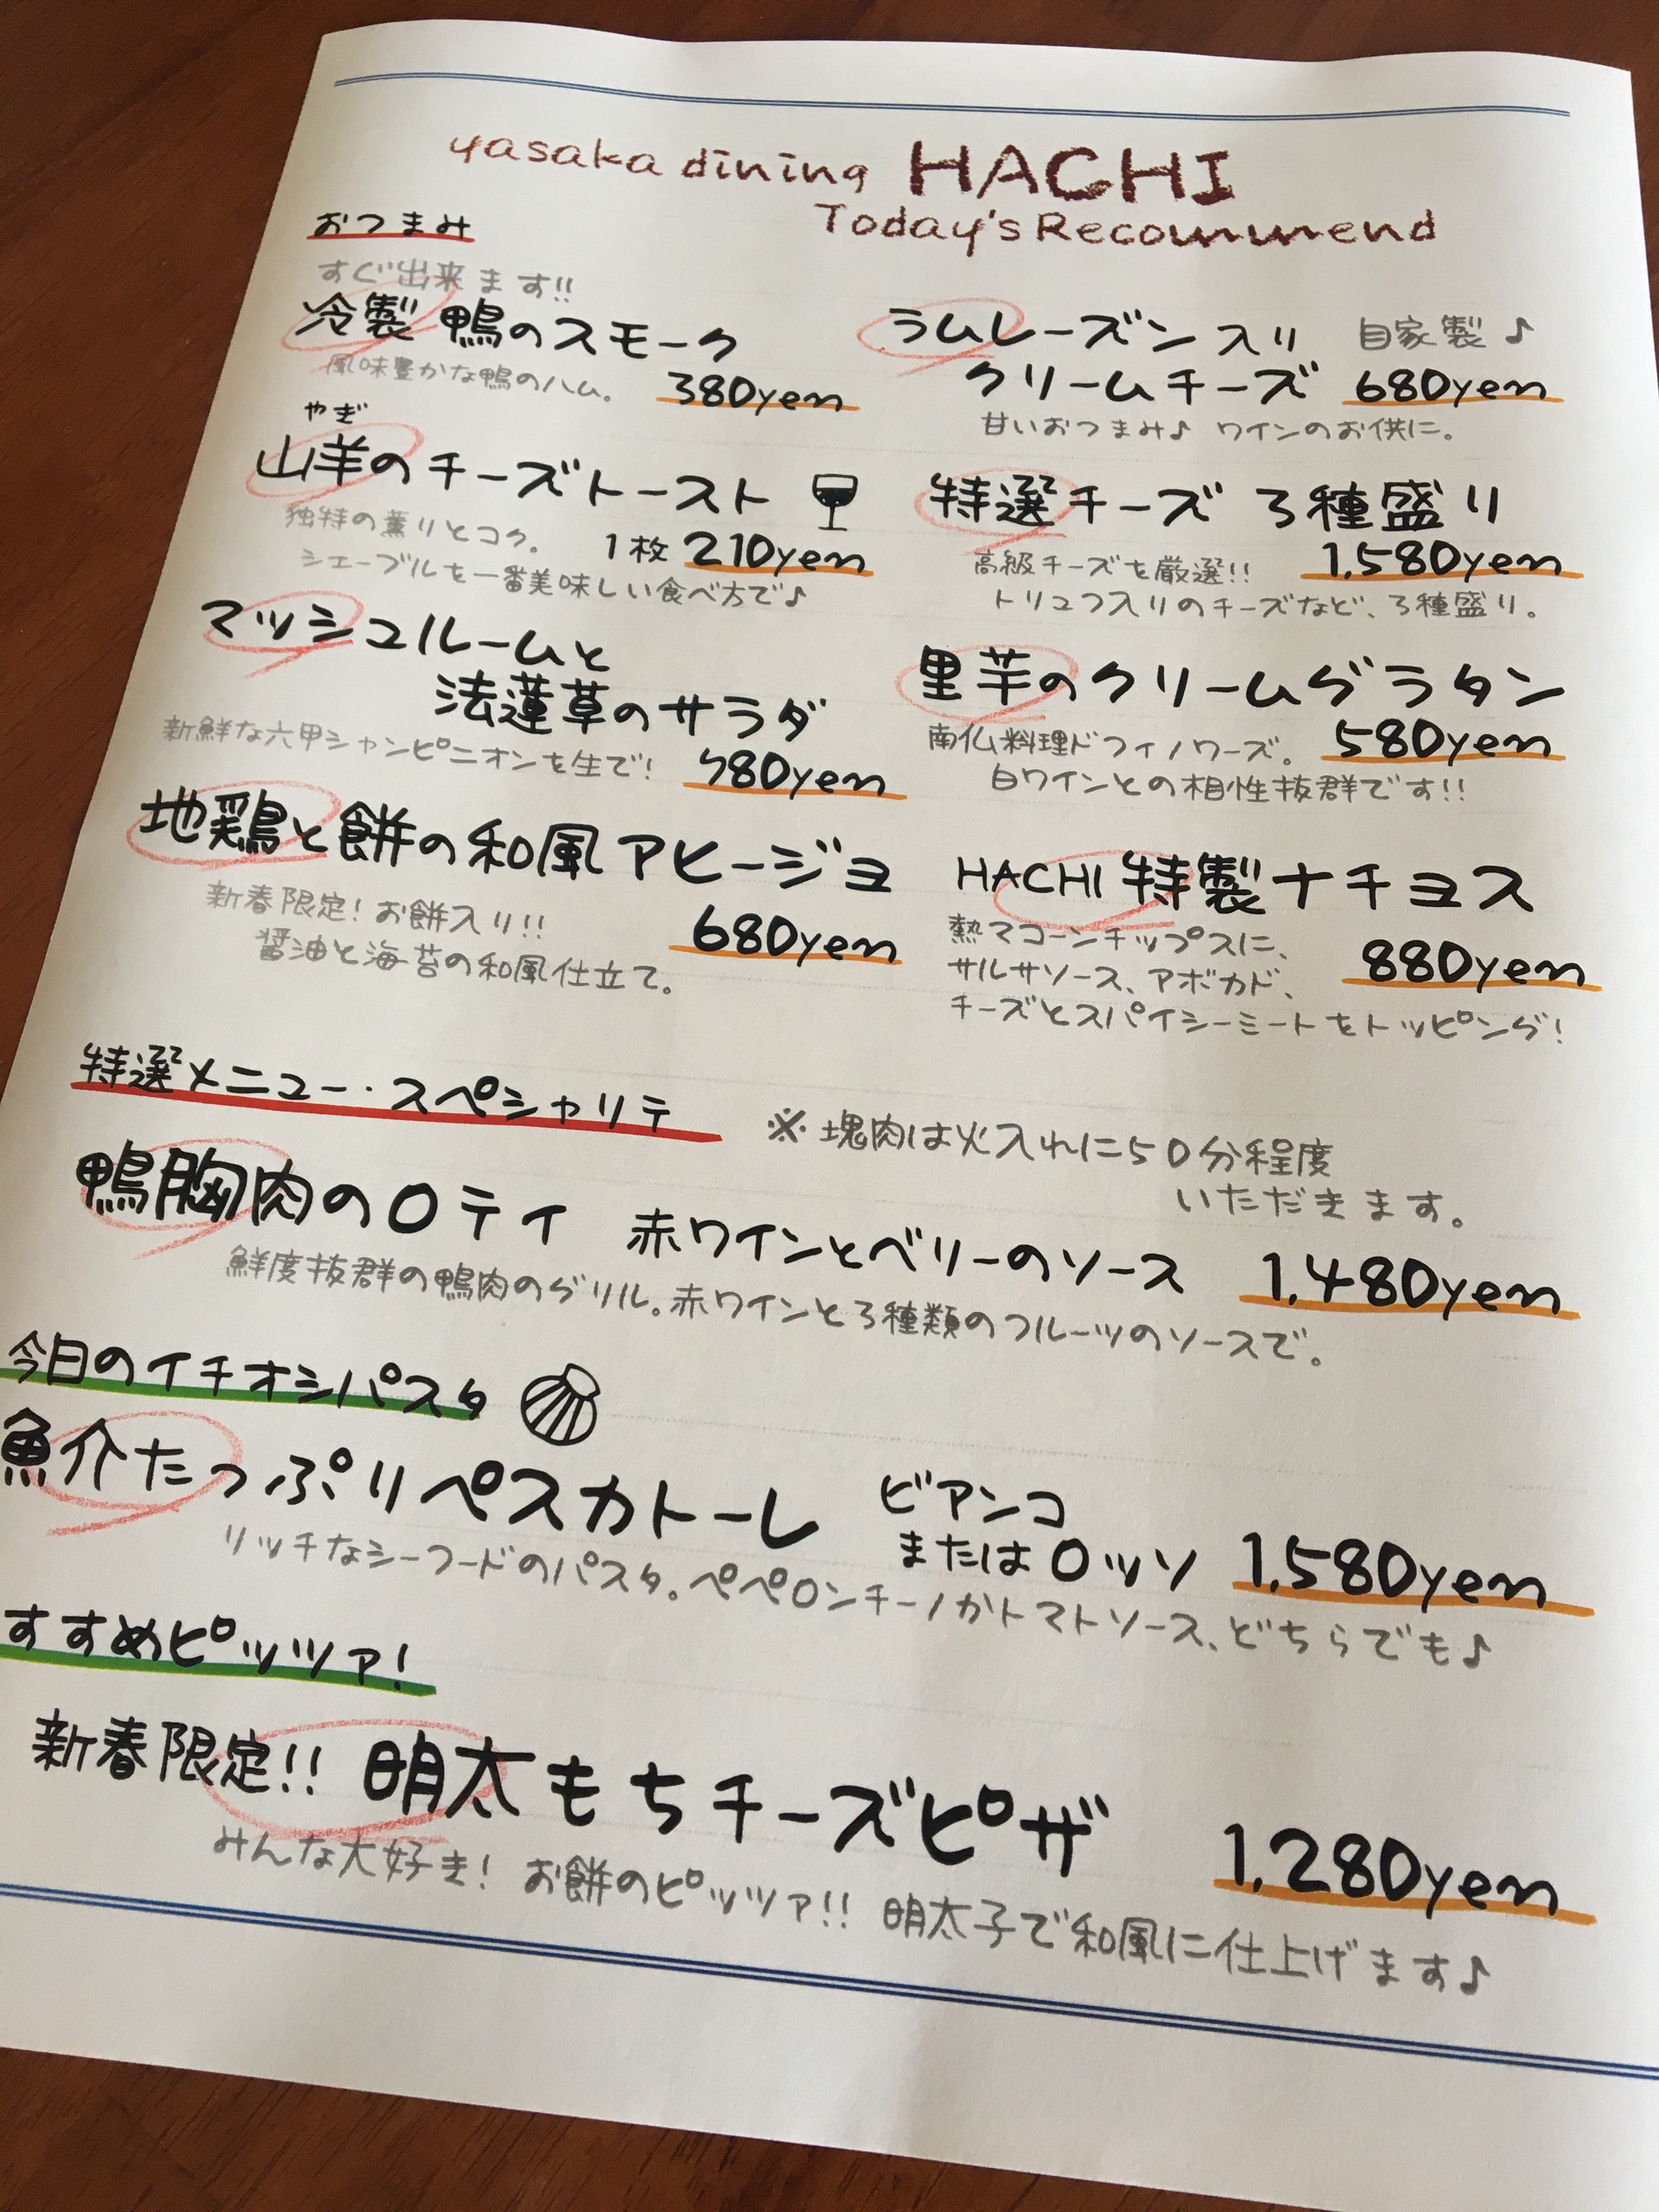 yasaka dining HACHI
Today's Recommend
おつまみ
すぐ出来ます!!
冷製 鴨のスモーク
風味豊かな鴨のハム。 380yen
やぎ
山羊のチーズトースト
独特の薫りとコク。 1枚 210yen
シェーブルを一番美味しい食べ方で♪
マッシュルームと
法蓮草のサラダ
新鮮な六甲シャンピニオンを生で! 480yen
地鶏と餅の和風アヒージョ
新春限定!お餅入り!! 680yen
醤油と海苔の和風仕立て。
ラムレーズン入り 自家製♪
クリームチーズ 680yen
甘いおつまみ♪ ワインのお供に。
特選チーズ 3種盛り
高級チーズを厳選!! 1,580yen
トリュフ入りのチーズなど、3種盛り。
里芋のクリームグラタン
南仏料理ドフィノワーズ。 580yen
白ワインとの相性抜群です!!
HACHI 特製ナチョス
熱々コーンチップスに、
サルサソース、アボカド、 880yen
チーズとスパイシーミートをトッピング!
特選メニュー・スペシャリテ
※塊肉は火入れに50分程度
いただきます。
鴨胸肉のロティ 赤ワインとベリーのソース 1,480yen
鮮度抜群の鴨肉のグリル。赤ワインと3種類のフルーツのソースで。
今日のイチオシパスタ
魚介たっぷりペスカトーレ ビアンコ
またはロッソ 1,580yen
リッチなシーフードのパスタ。ペペロンチーノかトマトソース、どちらでも♪
すすめピッツァ!
新春限定!! 明太もちチーズピザ 1,280yen
みんな大好き! お餅のピッツァ!! 明太子で和風に仕上げます♪